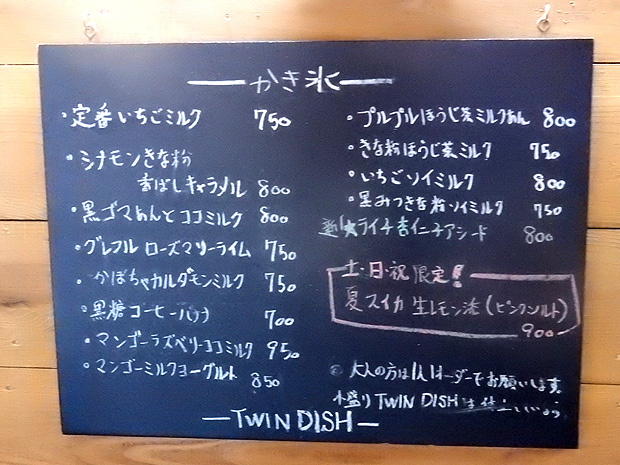 かき氷
・定番いちごミルク 750
・シナモンきな粉
香ばしキャラメル 800
・黒ゴマあんとココミルク 800
・グレフル ローズマリーライム 750
・かぼちゃカルダモンミルク 750
・黒糖コーヒーバナナ 700
・マンゴーラズベリーココミルク 950
・マンゴーミルクヨーグルト 850
・プルプルほうじ茶ミルクあん 800
・きな粉ほうじ茶ミルク 750
・いちごソイミルク 800
・黒みつきな粉ソイミルク 750
ライチ杏仁子アシード 800
土・日・祝 限定!
夏スイカ 生レモン添(ピンクソルト)
900
大人の方は1人1オーダーでお願いします
小盛り TWIN DISH は
TWIN DISH